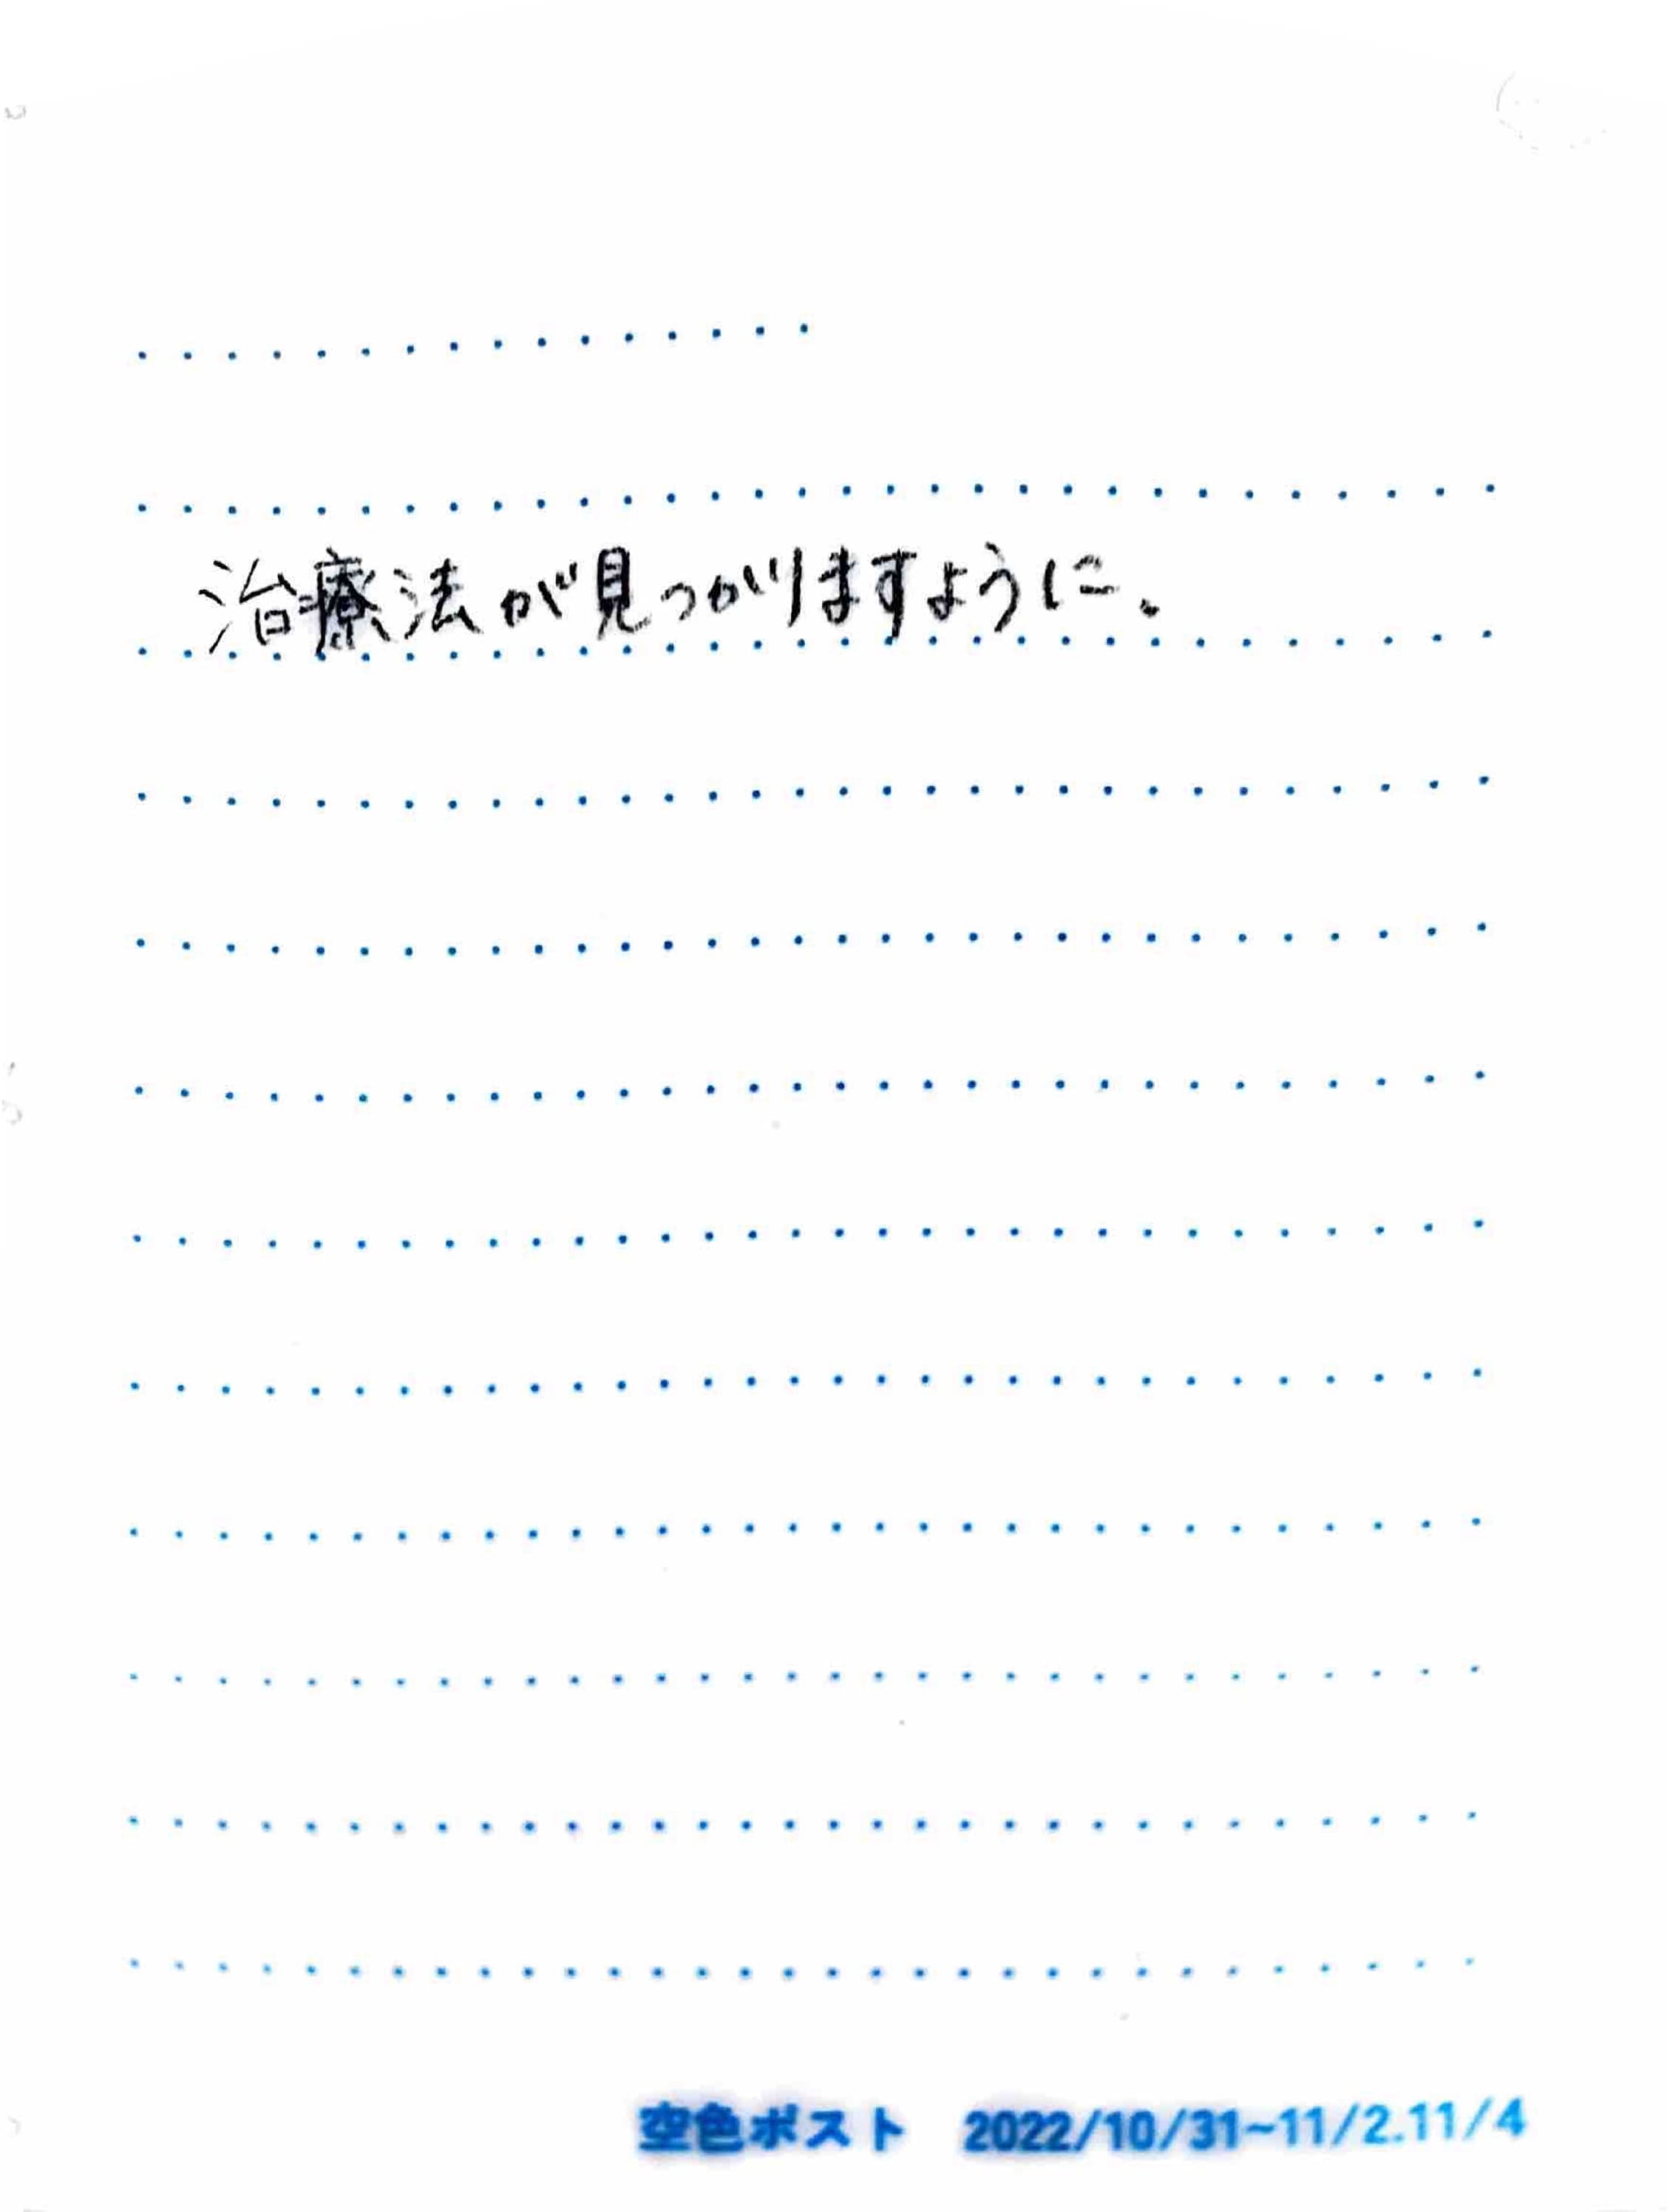 治療法が見つかりますように。
空色ポスト 2022/10/31~11/2.11/4